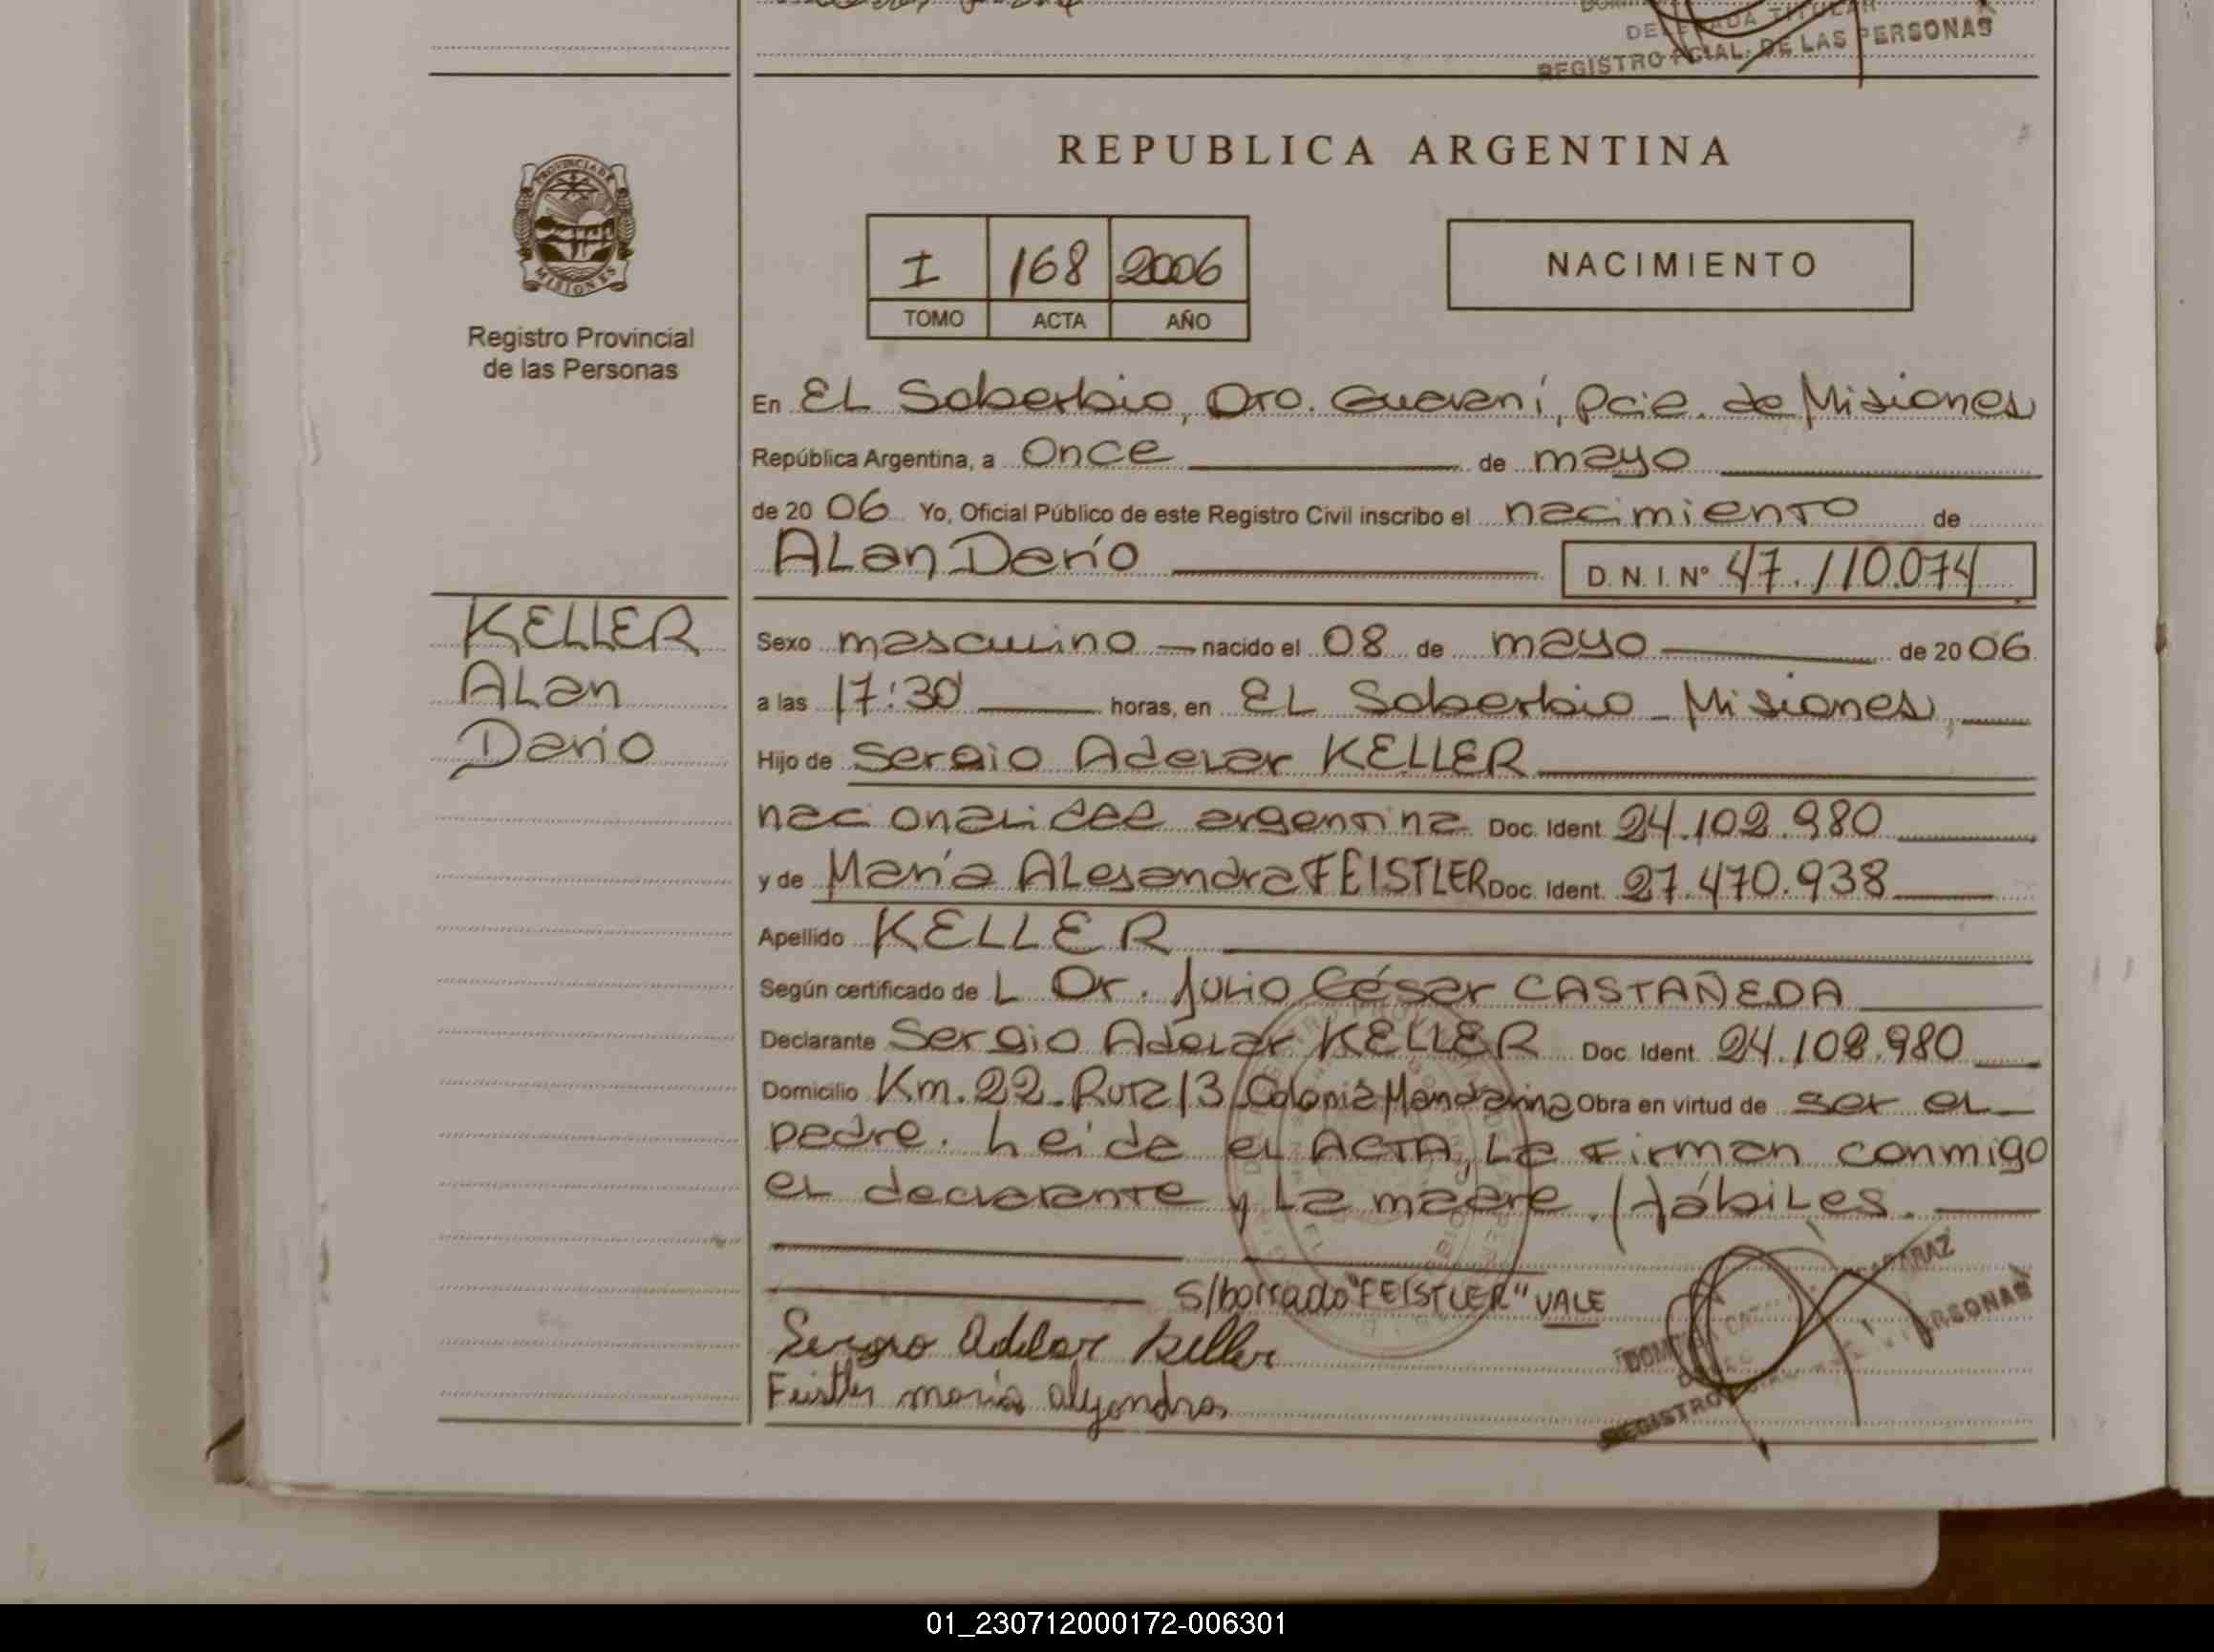 DELEGADA TITULAR
REGISTRO PCIAL. DE LAS PERSONAS
REPUBLICA ARGENTINA
PROVINCIA DE
MISIONES
Registro Provincial
de las Personas
I 168 2006
TOMO ACTA AÑO
NACIMIENTO
En EL Soberbio, Dto. Guaraní, Pcia. de Misiones
República Argentina, a Once de mayo
de 20 06 Yo, Oficial Público de este Registro Civil inscribo el nacimiento de
ALan Darío D.N.I. Nº 47.110.074
KELLER
ALan
Darío
Sexo masculino nacido el 08 de mayo de 20 06
a las 17:30 horas, en EL Soberbio - Misiones,
Hijo de Sergio Adelar KELLER
nacionalidad argentina Doc. Ident. 24.102.980
y de María ALejandra FEISTLER Doc. Ident. 27.470.938
Apellido KELLER
Según certificado de L Dr. Julio César CASTAÑEDA
Declarante Sergio Adelar KELLER Doc. Ident. 24.102.980
Domicilio Km. 22 - Ruta 13 Colonia Mandarina Obra en virtud de ser el
padre. Leída el ACTA, La Firman conmigo
el declarante y La madre. Hábiles.
S/borrado "FEISTLER" VALE
Sergio Adelar Keller
Feistler maria alejandra
REGISTRO PERSONAS
01_230712000172-006301